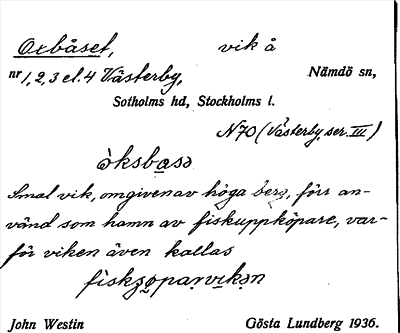 Oxbåset, vik å
nr 1, 2, 3 el. 4 Västerby, Nämdö sn,
Sotholms hd, Stockholms l.
N70 (Västerby, ser. III)
òksbasə
Smal vik, omgiven av höga berg, förr an-
vänd som hamn av fiskuppköpare, var-
för viken även kallas
John Westin Gösta Lundberg 1936.